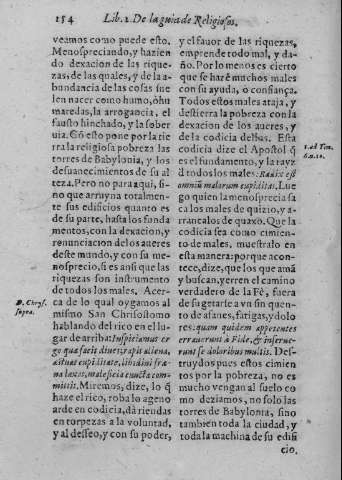 154 Lib. 1. De la guia de Religiosos.
veamos como puede esto.
Menospreciando, y hazien
do dexacion de las rique
zas; de las quales, y de la a-
bundancia de las cosas sue
len nacer como humo, ò hu
maredas, la arrogancia, el
fausto hinchado, y la sober
uia. Cõ esto pone por la tie
rra la religiosa pobreza las
torres de Babylonia, y los
desuanecimientos de su al
teza. Pero no para aqui, si-
no que arruyna totalmen-
te sus edificios quanto es
de su parte, hasta los funda
mentos, con la dexacion, y
renunciacion de los aueres
deste mundo, y con su me-
nosprecio, si es ansi que las
riquezas son instrumento
de todos los males. Acer-
D. Chrys. supra.
ca de lo qual oygamos al
mismo San Chrisostomo
hablando del rico en el lu-
gar de arriba: Inspiciamus er
go quæ facit diues; rapit aliena,
æstuat cupiditate, libidini fræ
na laxat, maleficia cuncta com-
mittit. Miremos, dize, lo q̃
haze el rico, roba lo ageno
arde en codicia, dà riendas
en torpezas a la voluntad,
y al desseo, y con su poder,
y el fauor de las riquezas,
emprende todo mal, y da-
ño. Por lo menos es cierto
que se harà muchos males
con su ayuda, ò confiança.
Todos estos males ataja, y
destierra la pobreza con la
dexacion de los aueres, y
de la codicia dellas. Esta
1. ad Tim. 6. n. 10.
codicia dize el Apostol q̃
es el fundamento, y la rayz
d todos los males: Radix est
omniũ malorum cupiditas, Lue
go quien la menosprecia sa
ca los males de quizio, y a-
rrancalos de quaxo. Que la
codicia sea como cimien-
to de males, muestralo en
esta manera: porque acon-
tece, dize, que los que amã
y buscan, yerren el camino
verdadero de la Fè, fuera
de sugetarse a vn sin quen-
to de afanes, fatigas, y dolo
res: quam quidem appetentes
errauerunt à Fide, & inserue-
runt se doloribus multis. Des-
truydos pues estos cimien
tos por la pobreza, no es
mucho vengan al suelo co
mo deziamos, no solo las
torres de Babylonia, sino
tambien toda la ciudad, y
toda la machina de su edifi
cio.